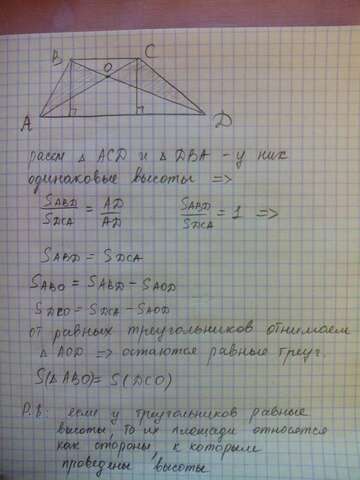 B C
O
A D
рассм △ ACD и △ DBA - у них
одинаковые высоты =>
S ABD / S DCA = AD / AD   S ABD / S DCA = 1 =>
S ABD = S DCA
S ABO = S ABD - S AOD
S DCO = S DCA - S AOD
от равных треугольников отнимаем
△ AOD => остаются равные треуг.
S(△ABO) = S(DCO)
P.S: если у треугольников равные
высоты, то их площади относятся
как стороны, к которым
проведены высоты